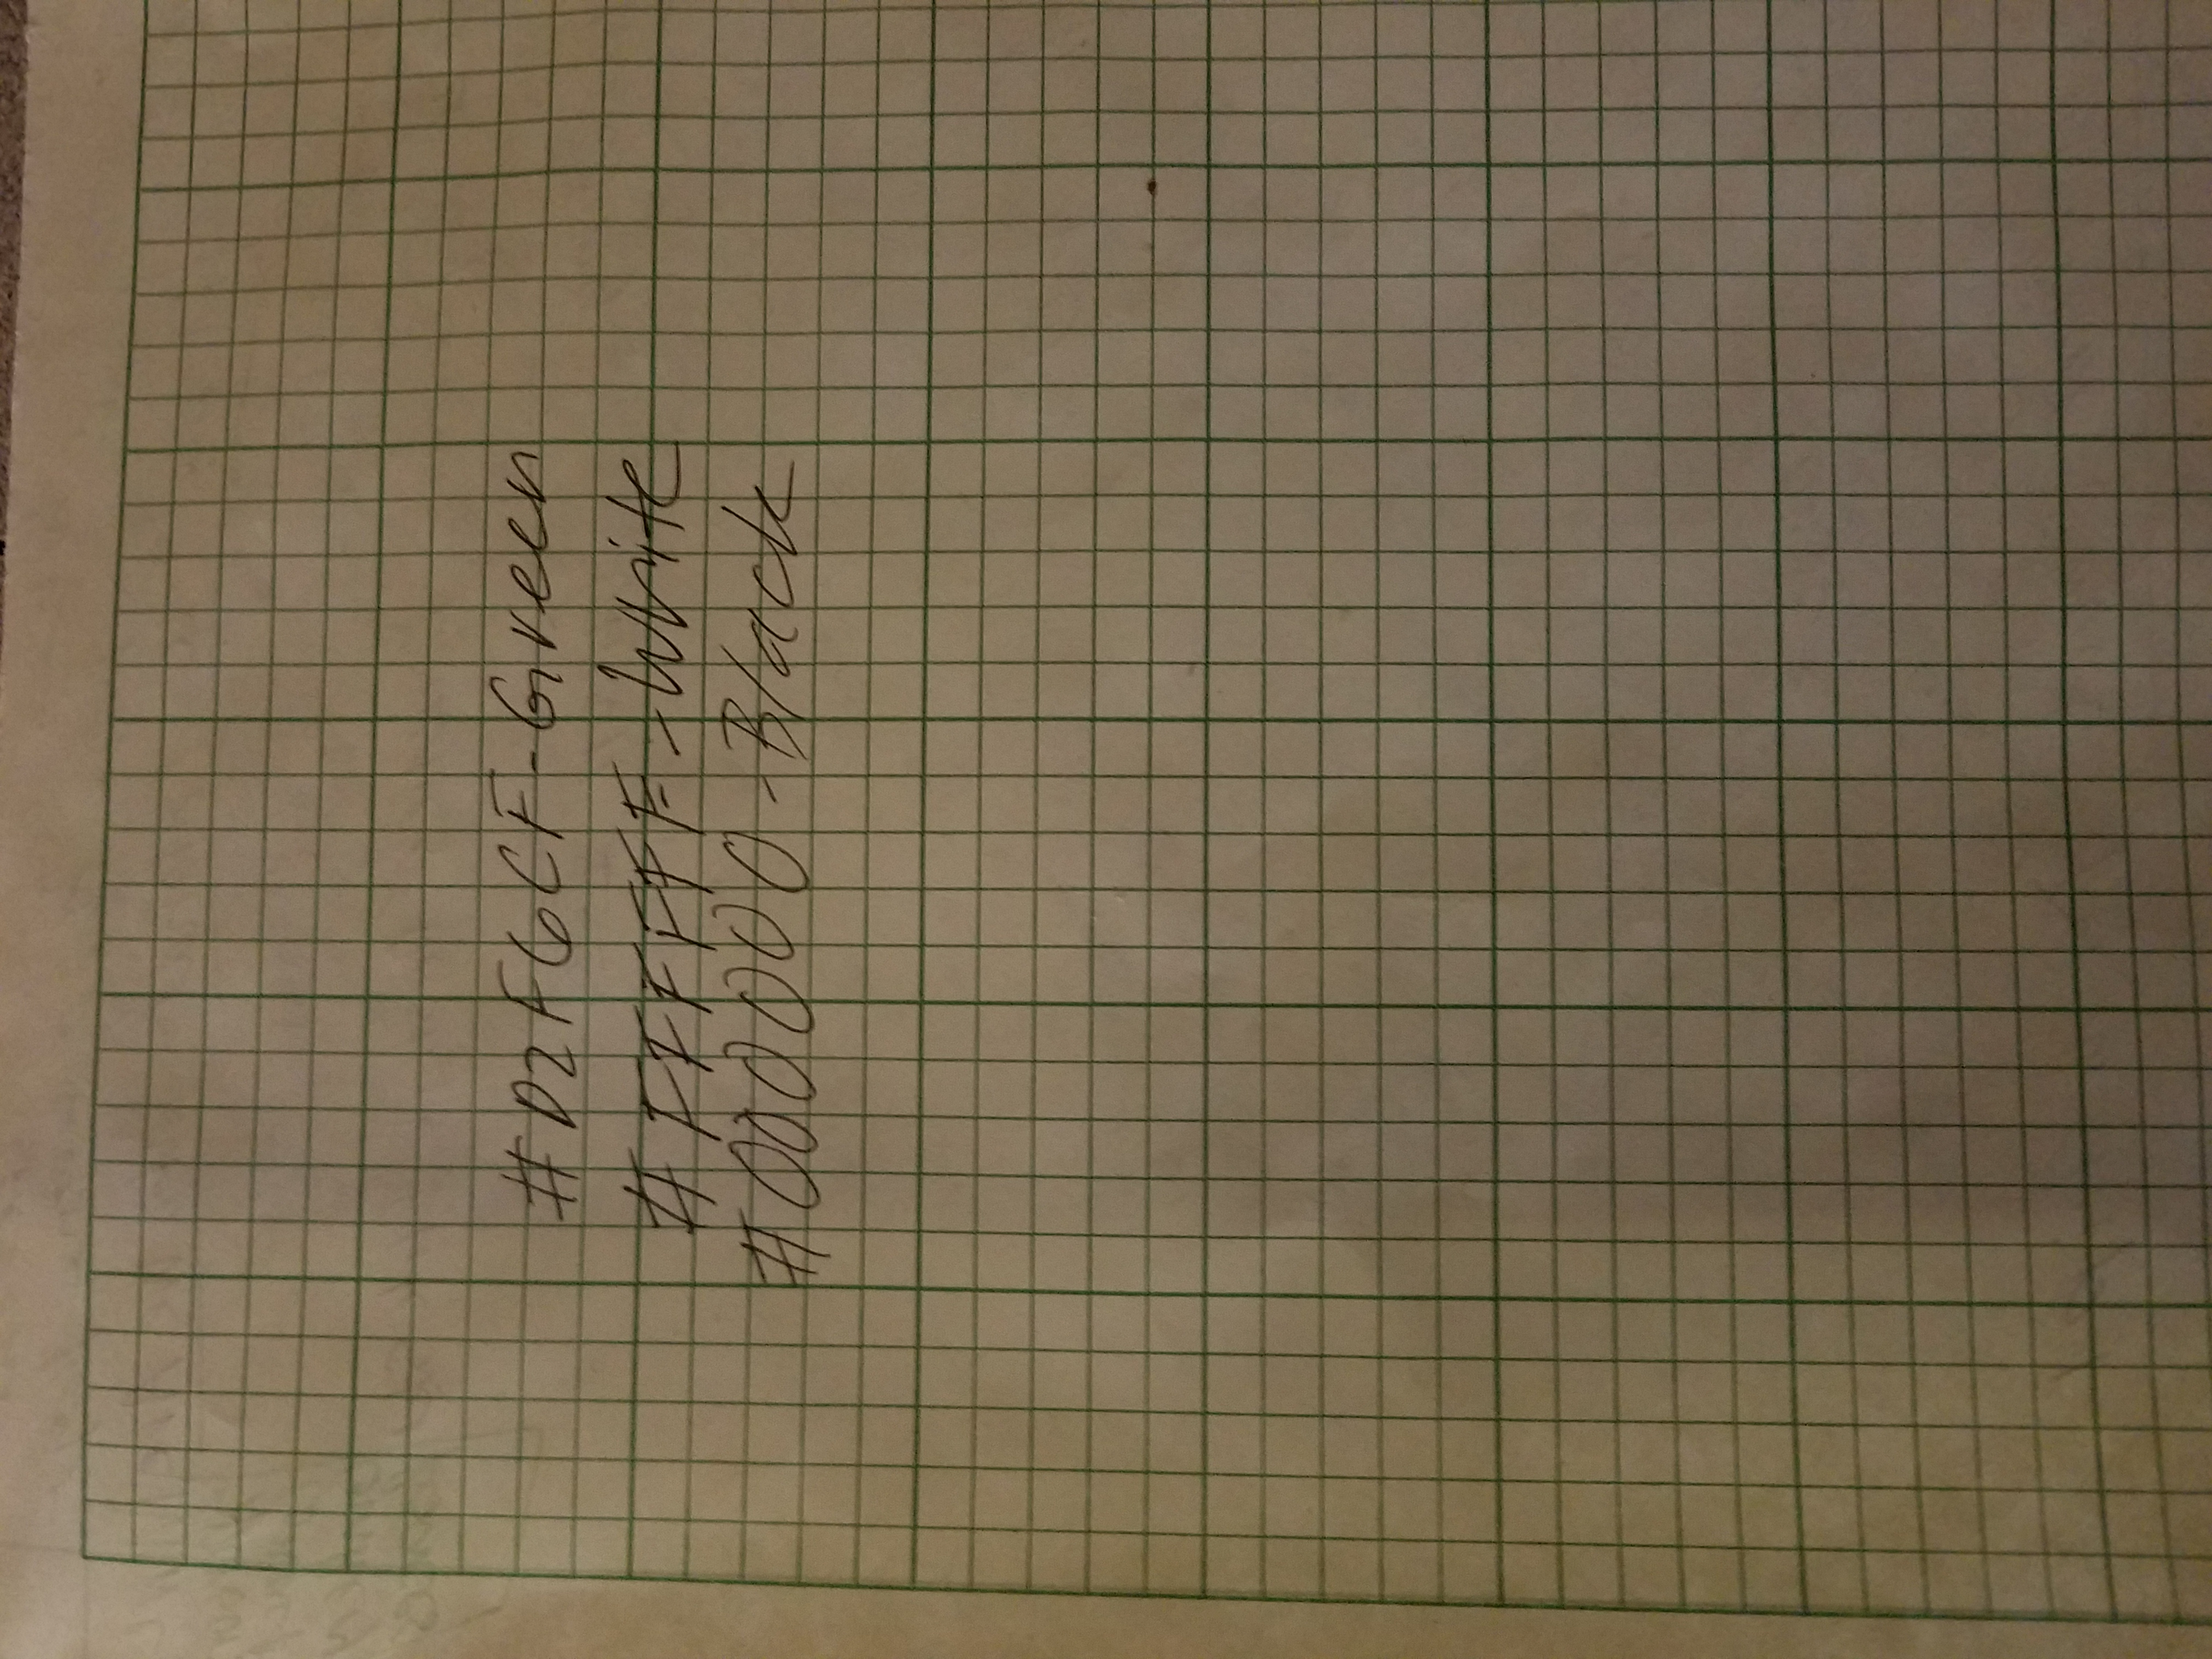 #D2F6CF-Green
#FFFFFF-White
#000000-Black